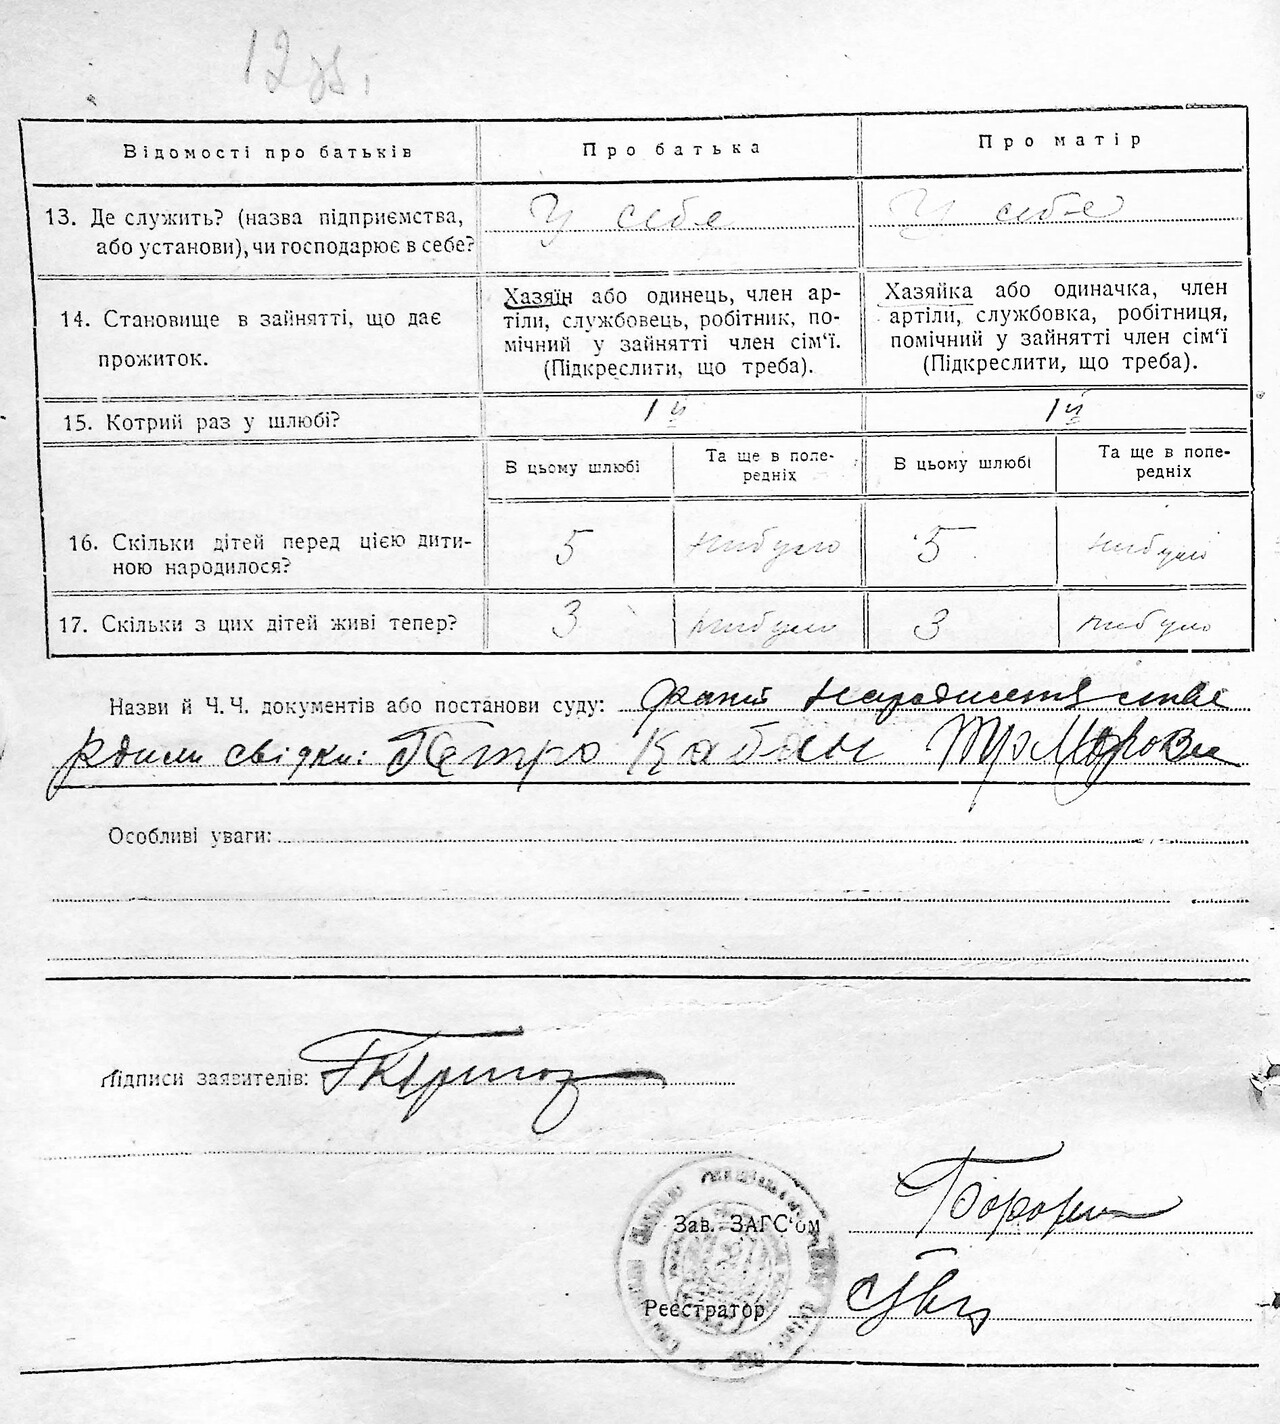 12
Відомості про батьків
Про батька
Про матір
13. Де служить? (назва підприємства, або установи), чи господарює в себе?
У себе
У себе
14. Становище в зайнятті, що дає прожиток.
Хазяїн або одинець, член ар-
тіли, службовець, робітник, по-
мічний у зайнятті член сім'ї.
(Підкреслити, що треба).
Хазяйка або одиначка, член
артіли, службовка, робітниця,
помічний у зайнятті член сім'ї
(Підкреслити, що треба).
15. Котрий раз у шлюбі?
1й
1й
В цьому шлюбі
Та ще в попе-
редніх
В цьому шлюбі
Та ще в попе-
редніх
16. Скільки дітей перед цією дити-
ною народилося?
5
нибуло
5
нибуло
17. Скільки з цих дітей живі тепер?
3
нибуло
3
нибуло
Назви й Ч.Ч. документів або постанови суду: факт народження стве
рдили свідки: Петро Кабан
Особливі уваги:
Підписи заявителів:
Зав. ЗАГС'ом
Реєстратор